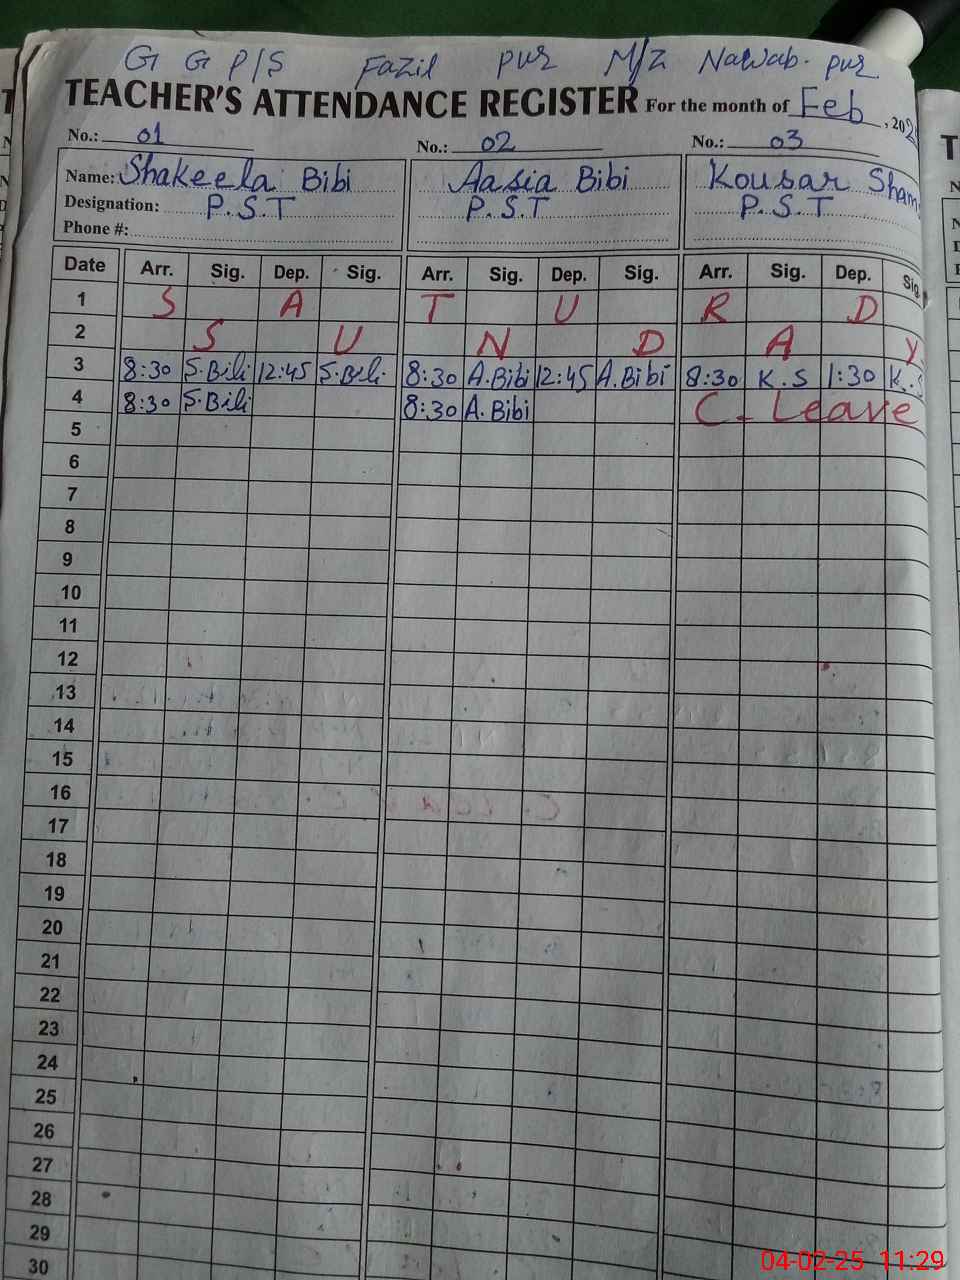 G G P/S Fazil pur M/Z Nawab. pur
TEACHER'S ATTENDANCE REGISTER For the month of Feb, 202
No.: 01 No.: 02 No.: 03
Name: Shakeela Bibi Aasia Bibi Kousar Sham
Designation: P.S.T P.S.T P.S.T
Phone #:
Date Arr. Sig. Dep. Sig. Arr. Sig. Dep. Sig. Arr. Sig. Dep. Sig.
1 S A T U R D
2 S U N D A Y
3 8:30 S.Bibi 12:45 S.Bibi 8:30 A.Bibi 12:45 A.Bibi 8:30 K.S 1:30 K.S
4 8:30 S.Bibi 8:30 A.Bibi C. Leave
5
6
7
8
9
10
11
12
13
14
15
16
17
18
19
20
21
22
23
24
25
26
27
28
29
30
04-02-25 11:29